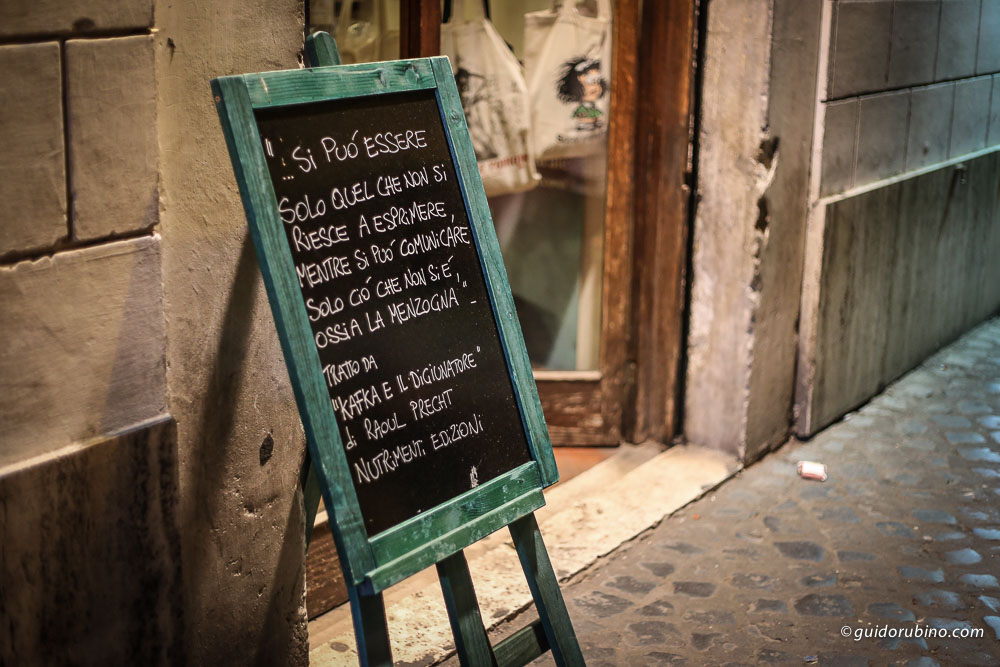 "...SI PUÓ ESSERE
SOLO QUEL CHE NON SI
RIESCE A ESPRIMERE,
MENTRE SI PUÓ COMUNICARE
SOLO CIÓ CHE NON SI É,
OSSIA LA MENZOGNA"-
TRATTO DA
"KAFKA E IL DIGIUNATORE"
di RAOUL PRECHT
NUTRIMENTI EDIZIONI
©guidorubino.com